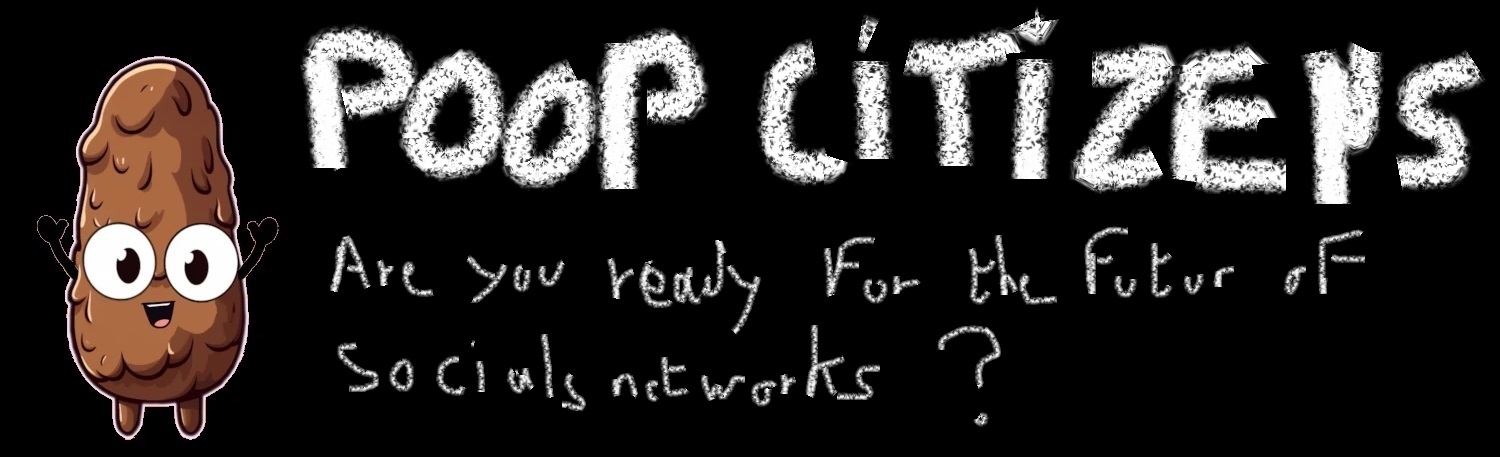 POOP CiTiZENS
Are you ready For the Futur oF
socials networks ?